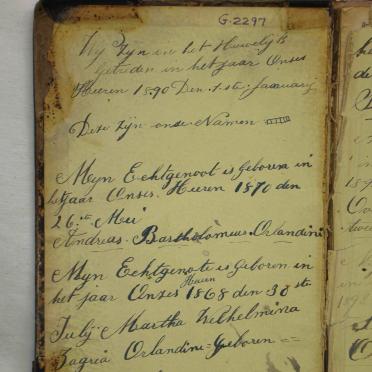 G.2297
Wij Zijn in het Huwelijk
getreden in het jaar Onses
Heeren 1890 Den 1.ste Januarij
Deze zijn onze Namen
Mijn Echtgenoot is geboren in
het jaar Onses. Heeren 1870 den
26.ste Mei
Andreas. Bartholomeus. Orlandini
Mijn Echtgenote is geboren in
het jaar Onses Heeren 1868 den 30 ste
Julij Martha Wilhelmina
Orlandini = geboren =